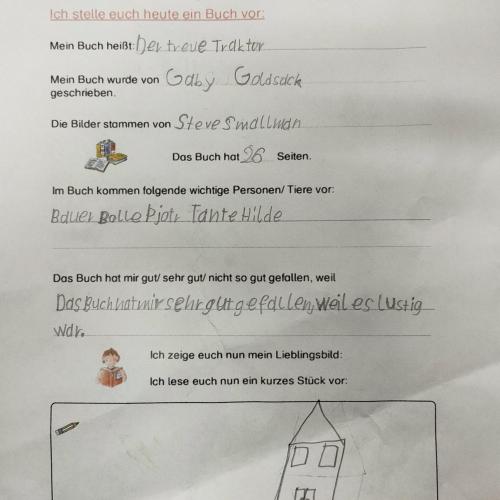 Ich stelle euch heute ein Buch vor:
Mein Buch heißt: Der treue Traktor
Mein Buch wurde von Gaby Goldsack
geschrieben.
Die Bilder stammen von Steve Smallman
Das Buch hat 26 Seiten.
Im Buch kommen folgende wichtige Personen/ Tiere vor:
Bauer Bolle Pjotr Tante Hilde
Das Buch hat mir gut/ sehr gut/ nicht so gut gefallen, weil
Das Buch hat mir sehr gut gefallen, weil es lustig
war.
Ich zeige euch nun mein Lieblingsbild:
Ich lese euch nun ein kurzes Stück vor: